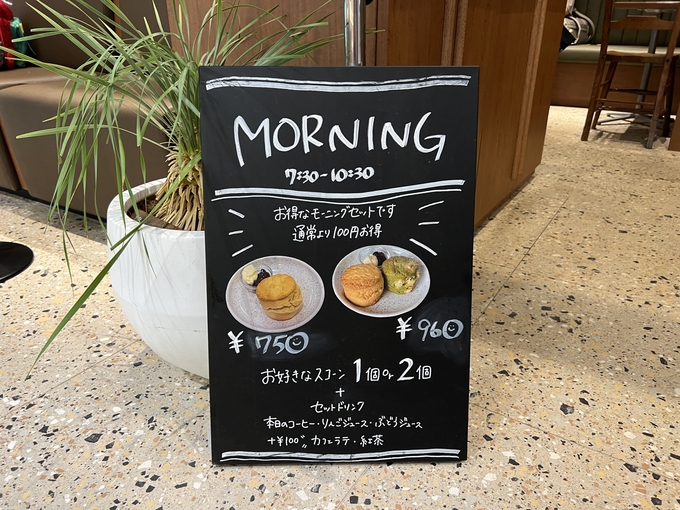 MORNING
7:30-10:30
お得なモーニングセットです
通常より100円お得
¥750
¥960
お好きなスコーン 1個 or 2個
+
セットドリンク
本日のコーヒー・りんごジュース・ぶどうジュース
+¥100〃 カフェラテ・紅茶